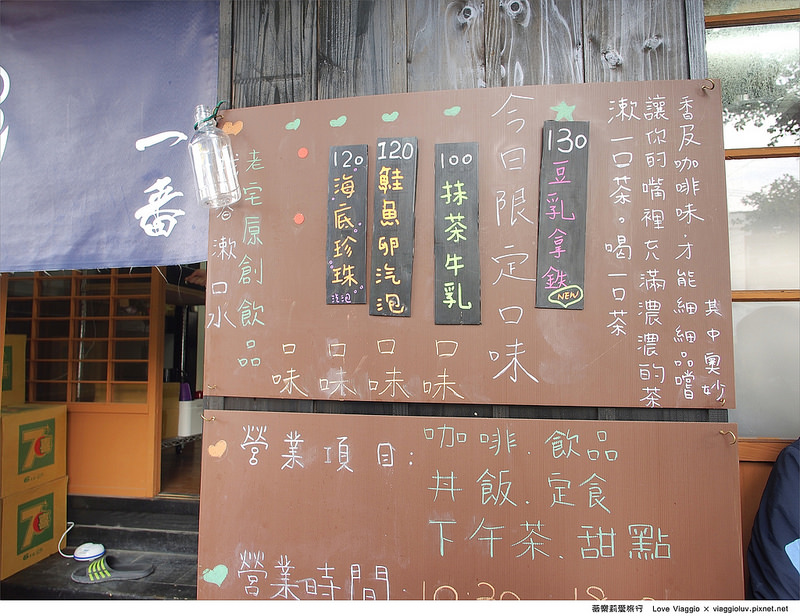 一番
香及咖啡味，才能細細品嚐其中奧妙。
讓你的嘴裡充滿濃濃的茶
漱一口茶。喝一口茶
130 豆乳拿鐵 NEW
今日限定口味
100 抹茶牛乳
口味
120 鮭魚卵汽泡
口味
120 海底珍珠 汽泡
口味
口味
老宅原創飲品
漱口水
營業項目：咖啡．飲品
丼飯．定食
下午茶．甜點
營業時間
7
7
薇樂莉愛旅行 Love Viaggio × viaggioluv.pixnet.net